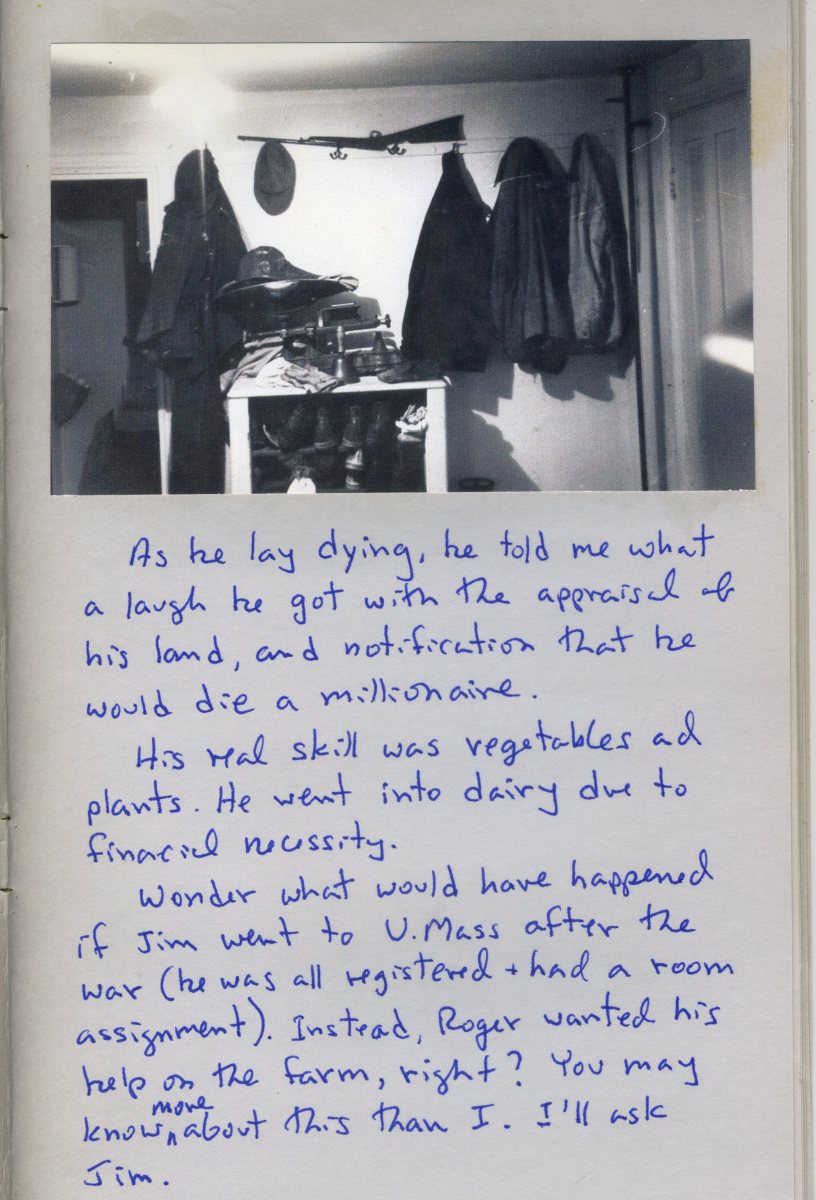 As he lay dying, he told me what
a laugh he got with the appraisal of
his land, and notification that he
would die a millionaire.
His real skill was vegetables ad
plants. He went into dairy due to
finacial necessity.
Wonder what would have happened
if Jim went to U.Mass after the
war (he was all registered + had a room
assignment). Instead, Roger wanted his
help on the farm, right? You may
know more about this than I. I'll ask
Jim.